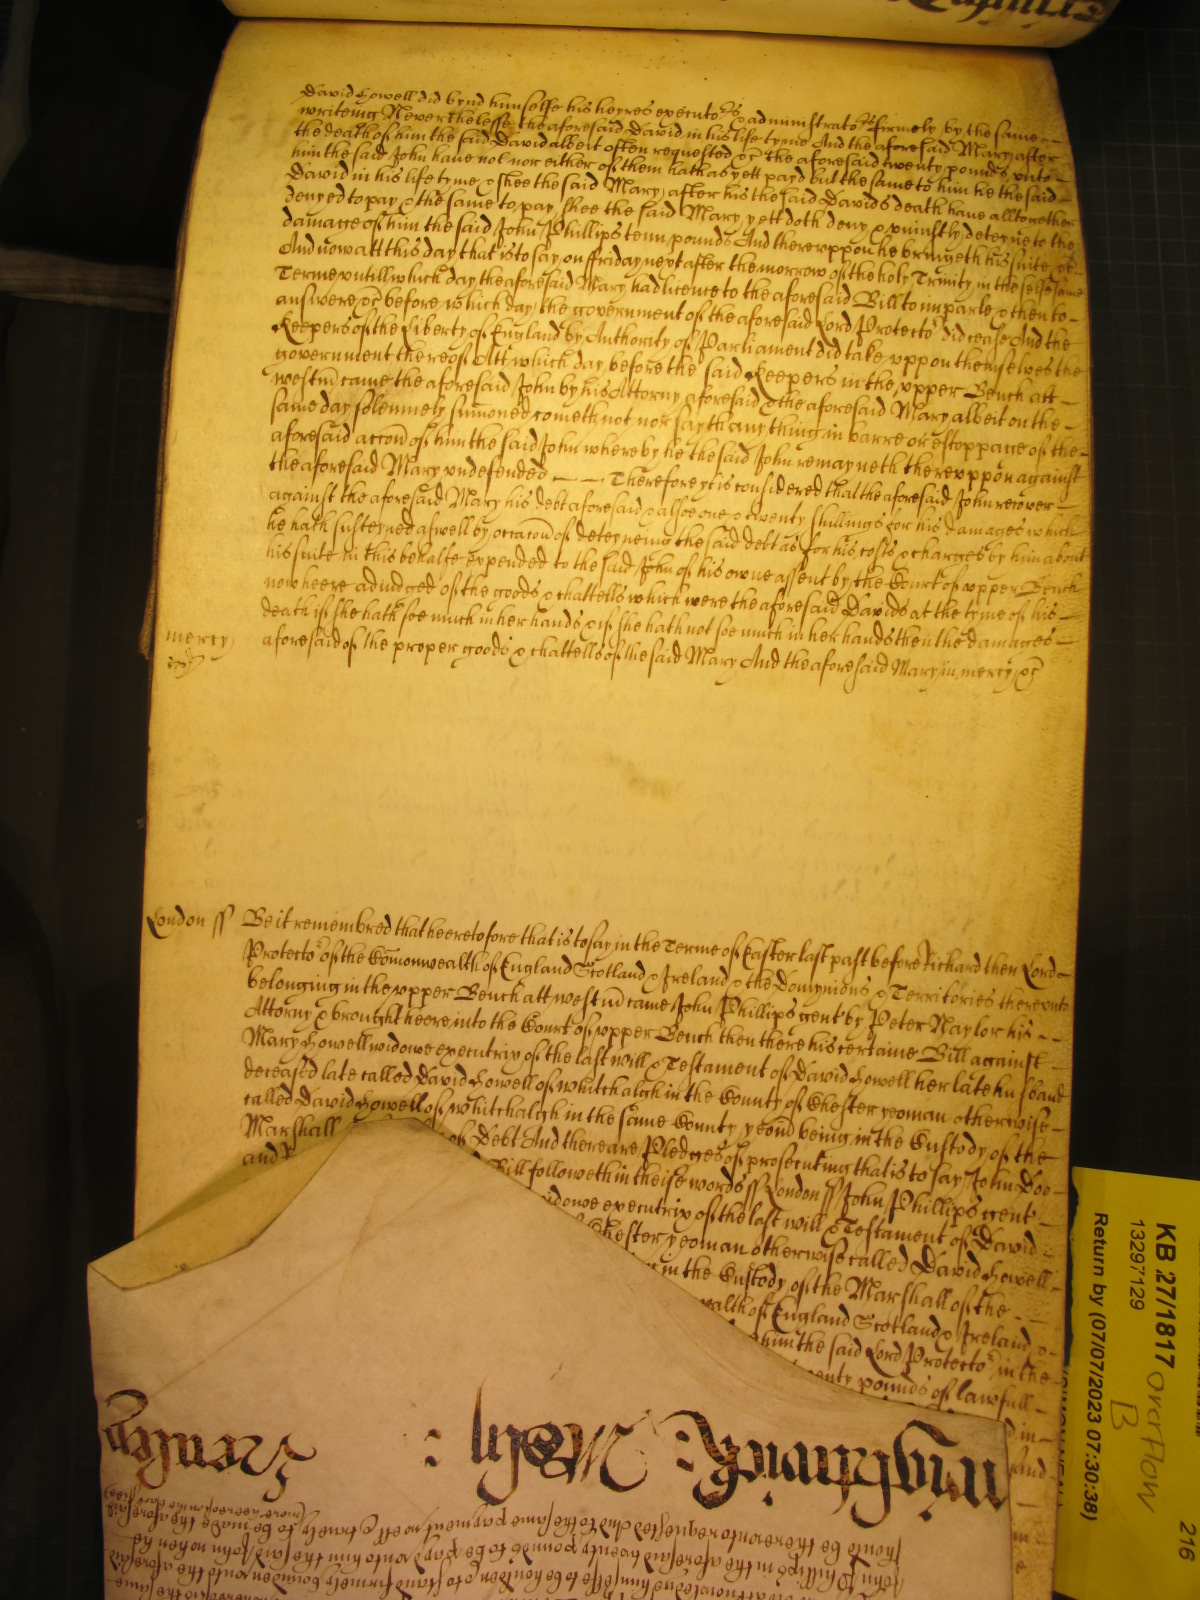 David Howell did bynd himselfe his heyres executors & administrators firmely by the same
writeing Neverthelesse the aforesaid David in his life tyme And the aforesaid Mary after
the death of him the said David albeit often requested &c the aforesaid twenty pounds unto
him the said John have not nor either of them hath as yett payd but the same to him he the said
David in his life tyme & shee the said Mary after his the said Davids death have alltogether
denyed to pay & the same to pay shee the said Mary yett doth deny & uniustly deteyne to the
damage of him the said John Phillips tenn pounds And thereuppon he bringeth his suite &c
And now att this day that is to say on ffriday next after the morrow of the holy Trinity in the selfe same
Terme untill which day the aforesaid Mary had licence to the aforesaid Bill to imparle & then to
answere &c before which day the government of the aforesaid Lord Protector did cease And the
Keepers of the Liberty of England by Authority of Parliament did take uppon themselves the
government thereof Att which day before the said Keepers in the upper Bench att
westm came the aforesaid John by his Attorny aforesaid & the aforesaid Mary albeit on the
same day solemnely sumoned cometh not nor say th any thing in barre or estoppage of the
aforesaid accon of him the said John whereby he the said John remayneth thereuppon against
the aforesaid Mary undefended Therefore yt is considered that the aforesaid John recover
against the aforesaid Mary his debt aforesaid & alsoe one & twenty shillings for his damages which
he hath susteyned aswell by occacon of deteyneing the said debt as for his costs & charges by him about
his suite in this behalfe expended to the said John of his owne assent by the Court of upper Bench
now heere adiudged of the goods & chattells which were the aforesaid Davids at the tyme of his
death if she hath soe much in her hands & if she hath not soe much in her hands then the damages
mercy aforesaid of the proper goods & chattells of the said Mary And the aforesaid Mary in mercy &c
London ss Be it remembred that heeretofore that is to say in the Terme of Easter last past before Richard then Lord
Protector of the Comonwealth of England Scotland & Ireland & the Dominions & Territories thereunto
belonging in the upper Bench att westm came John Phillips gent by Peter Naylor his
Attorny & brought heere into the Court of upper Bench then there his certaine Bill against
Mary Howell widowe executrix of the last will & Testament of David Howell her late husband
deceased late called David Howell of whitchalgh in the County of Chester yeoman otherwise
called David Howell of whitchalgh in the same County yeom being in the Custody of the
Marshall of Debt And there are Pledges of prosecuting that is to say John Doo
and Bill followeth in theise words ss London ss John Phillips gent
widowe executrix of the last will & Testament of David
Chester yeoman otherwise called David Howell
in the Custody of the Marshall of the
wealth of England Scotland & Ireland &
him the said Lord Protector in the
twenty pounds of lawfull
in
and
KB 27/1817 overflow
13297129 B
Return by (07/07/2023 07:30:38)
216
thento be thereunto requested And to the same payment well & truely to be made the aforesaid
John Phillips in the aforesaid twenty pounds to be payd unto him the said John when he
himselfe to be houlden & to stand firmely bounden unto the aforesaid